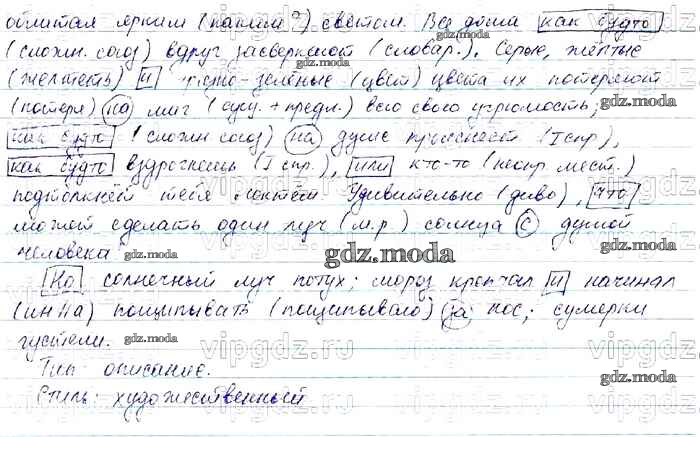 облитая ярким (каким?) светом. Все дома как будто
(сложн. союз) вдруг засверкают (словар.). Серые, жёлтые
(желтеть) и грязно-зелёные (цвет) цвета их потеряют
(потеря) на миг (сущ. + предл.) всю свою угрюмость;
как будто (сложн союз) на душе прояснеет (I спр),
как будто вздрогнешь (I спр.), или кто-то (неопр мест.)
подтолкнёт тебя локтем. Удивительно (диво), что
может сделать один луч (м.р) солнца с душой
человека
Но солнечный луч потух; мороз крепчал и начинал
(ин На) пощипывать (пощипывало) за нос; сумерки
густели.
Тип: описание.
Стиль: художественный
gdz.moda
vipgdz.ru